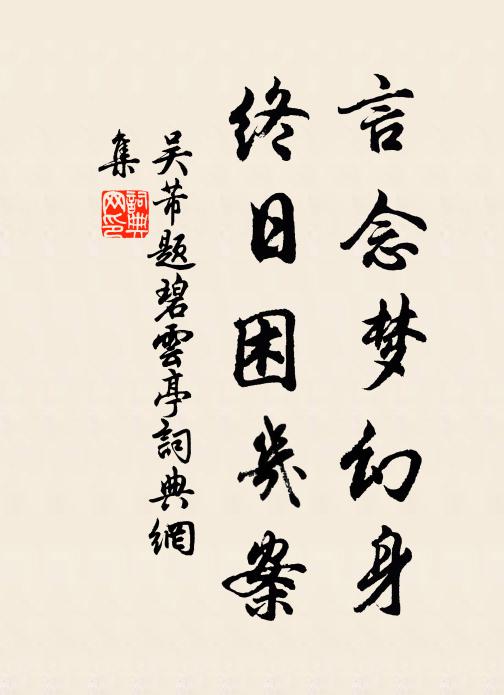 言念梦幻身
终日困几案
吴芾题碧雲亭詞典網
集
詞典网印